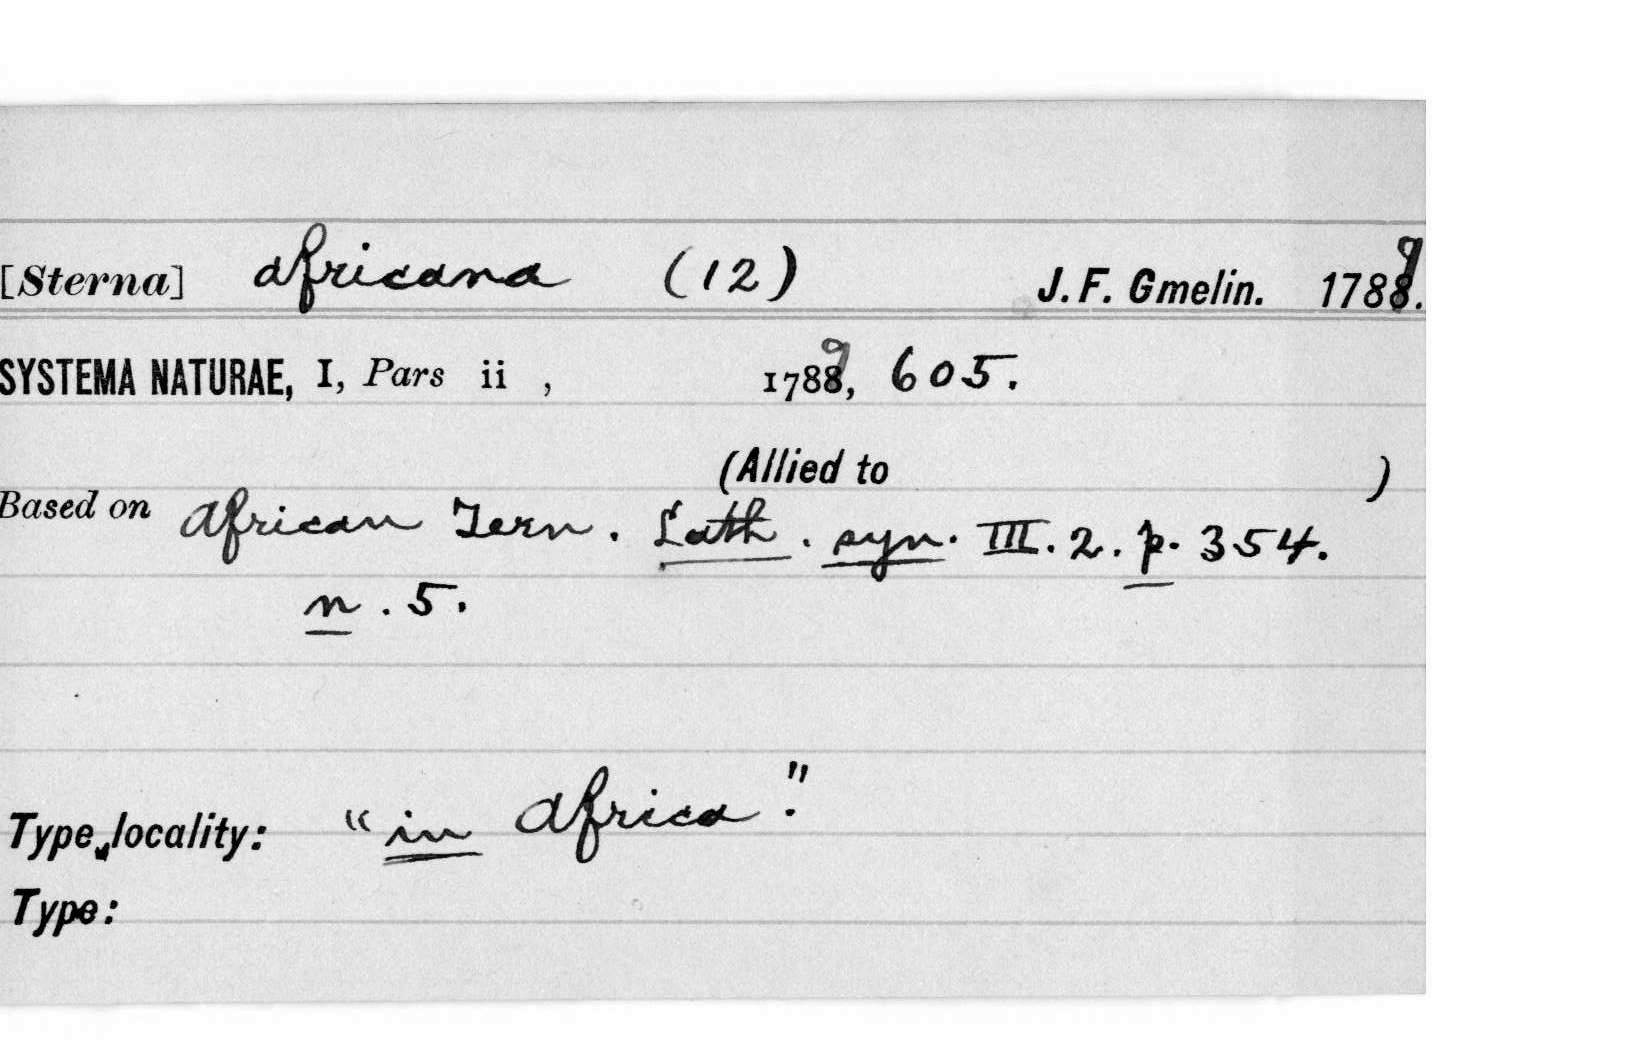 [Sterna] africana (12) J. F. Gmelin. 1789.
SYSTEMA NATURAE, I, Pars ii , 1789, 605.
(Allied to )
Based on African Tern. Lath. syn. III. 2. p. 354.
n. 5.
Type locality: "in Africa."
Type: